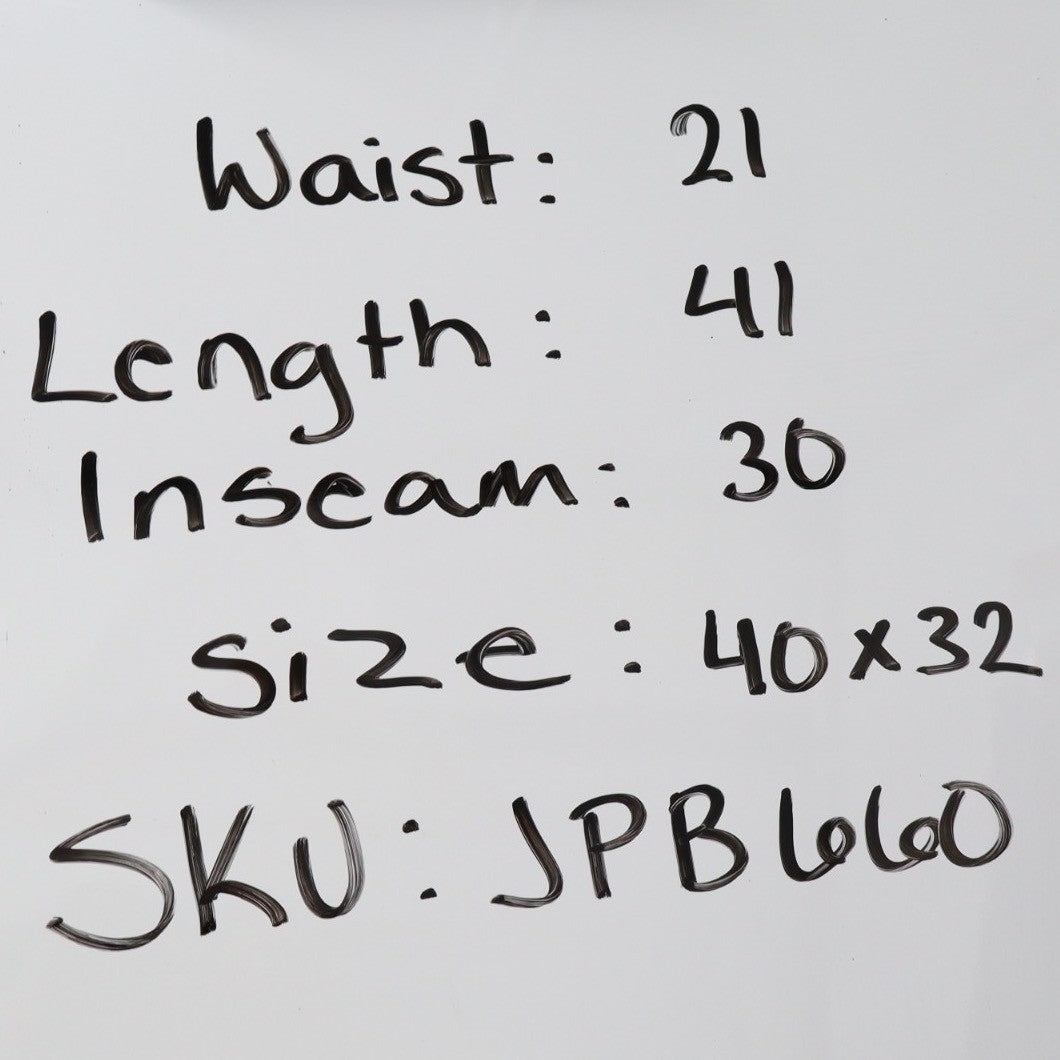 Waist: 21
Length: 41
Inseam: 30
Size: 40x32
SKU: JPB660